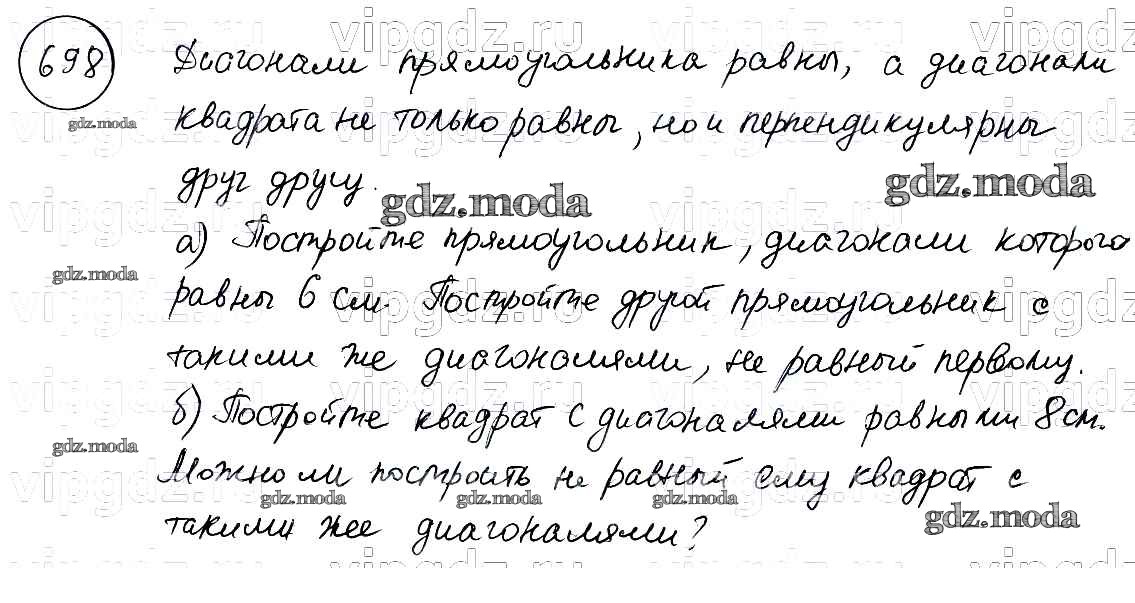 698 Диагонали прямоугольника равны, а диагонали
квадрата не только равны, но и перпендикулярны
друг другу.
а) Постройте прямоугольник, диагонали которого
равны 6 см. Постройте другой прямоугольник с
такими же диагоналями, не равный первому.
б) Постройте квадрат с диагоналями равными 8 см.
Можно ли построить не равный ему квадрат с
такими же диагоналями?
gdz.moda
gdz.moda
gdz.moda
gdz.moda
gdz.moda
gdz.moda
gdz.moda
gdz.moda
gdz.moda
vipgdz.ru